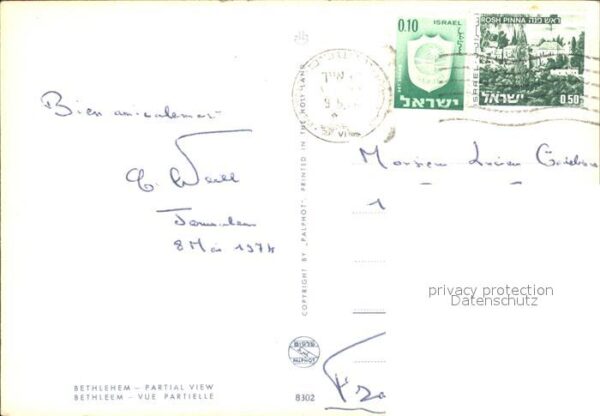 Bien amicalement
Jerusalem
8 Mai 1974
BETHLEHEM – PARTIAL VIEW
BETHLEEM – VUE PARTIELLE
8302
COPYRIGHT BY „PALPHOT", PRINTED IN THE HOLY-LAND
פלפוט
PALPHOT
0.10
ISRAEL
ישראל
ROSH PINNA ראש פנה
ISRAEL
ישראל
0.50
Monsieur Lucien
privacy protection
Datenschutz